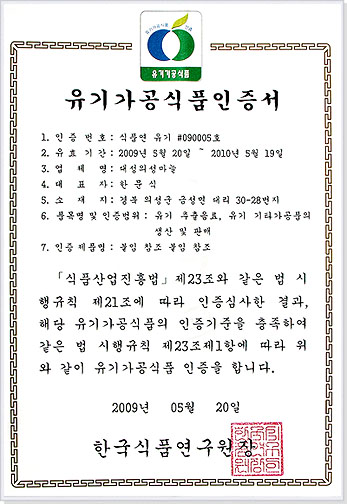 유기가공식품 인증
유기가공식품
유기가공식품인증서
1. 인 증 번 호 : 식품연 유기 #090005호
2. 유 효 기 간 : 2009년 5월 20일 ~ 2010년 5월 19일
3. 업 체 명 : 대성의성마늘
4. 대 표 자 : 한 문 식
5. 소 재 지 : 경북 의성군 금성면 대리 30-28번지
6. 품목명 및 인증범위 : 유기 추출음료, 유기 기타가공품의
생산 및 판매
7. 인증제품명 : 붙임 참조 붙임 참조
「식품산업진흥법」제23조와 같은 법 시
행규칙 제21조에 따라 인증심사한 결과,
해당 유기가공식품의 인증기준을 충족하여
같은 법 시행규칙 제23조제1항에 따라 위
와 같이 유기가공식품 인증을 합니다.
2009년 05월 20일
한국식품연구원장